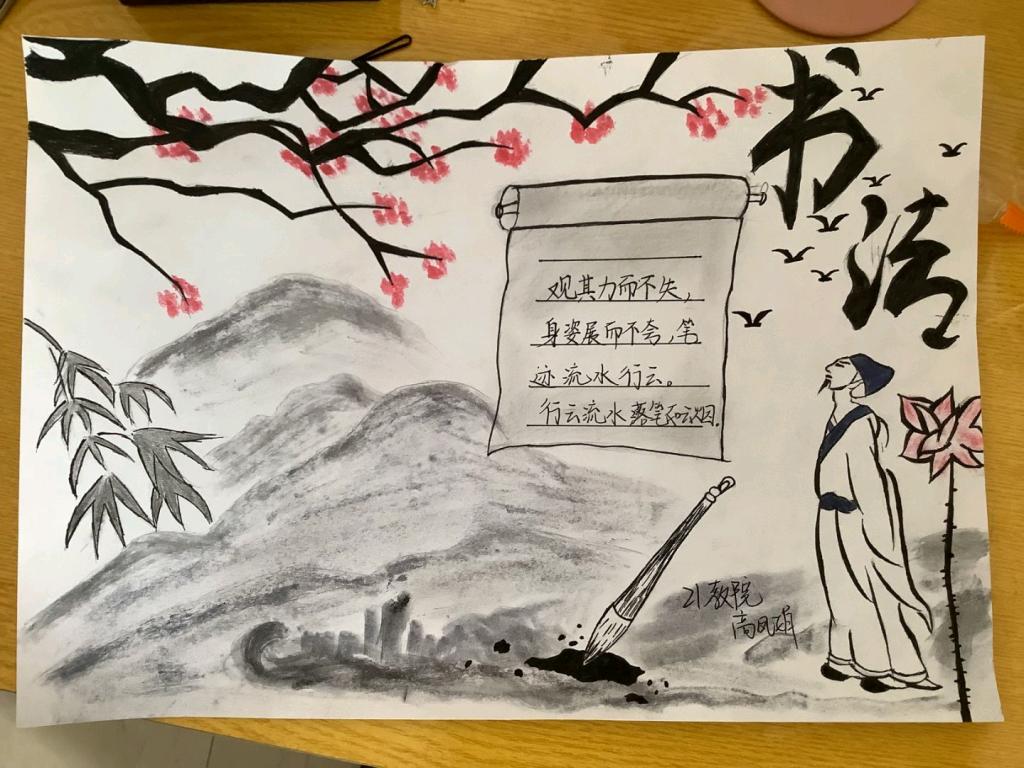 书法
观其力而不失，
身姿展而不夸，笔
迹流水行云。
行云流水 落笔如云烟.
21教院
高风娟